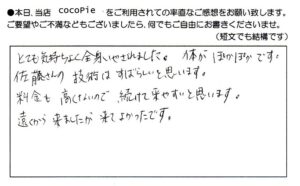 ●本日、当店 cocoPie をご利用されての率直なご感想をお願い致します。
ご要望やご不満などもございましたら、何でもご自由にお書きくださいませ。
（短文でも結構です）
とても気持ちよく全身いやされました。体がぽかぽかです。
佐藤さんの技術はすばらしいと思います。
料金も高くないので続けて来やすいと思います。
遠くから来ましたが来てよかったです。